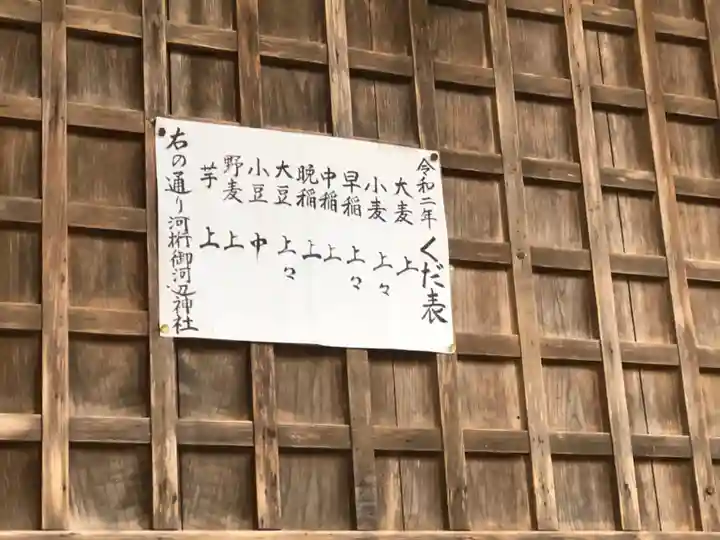 令和二年 くだ表
大麦 上
小麦 上々
早稲 上々
中稲 上
晩稲 上
大豆 上々
小豆 中
野麦 上
芋 上
右の通り河桁御河辺神社